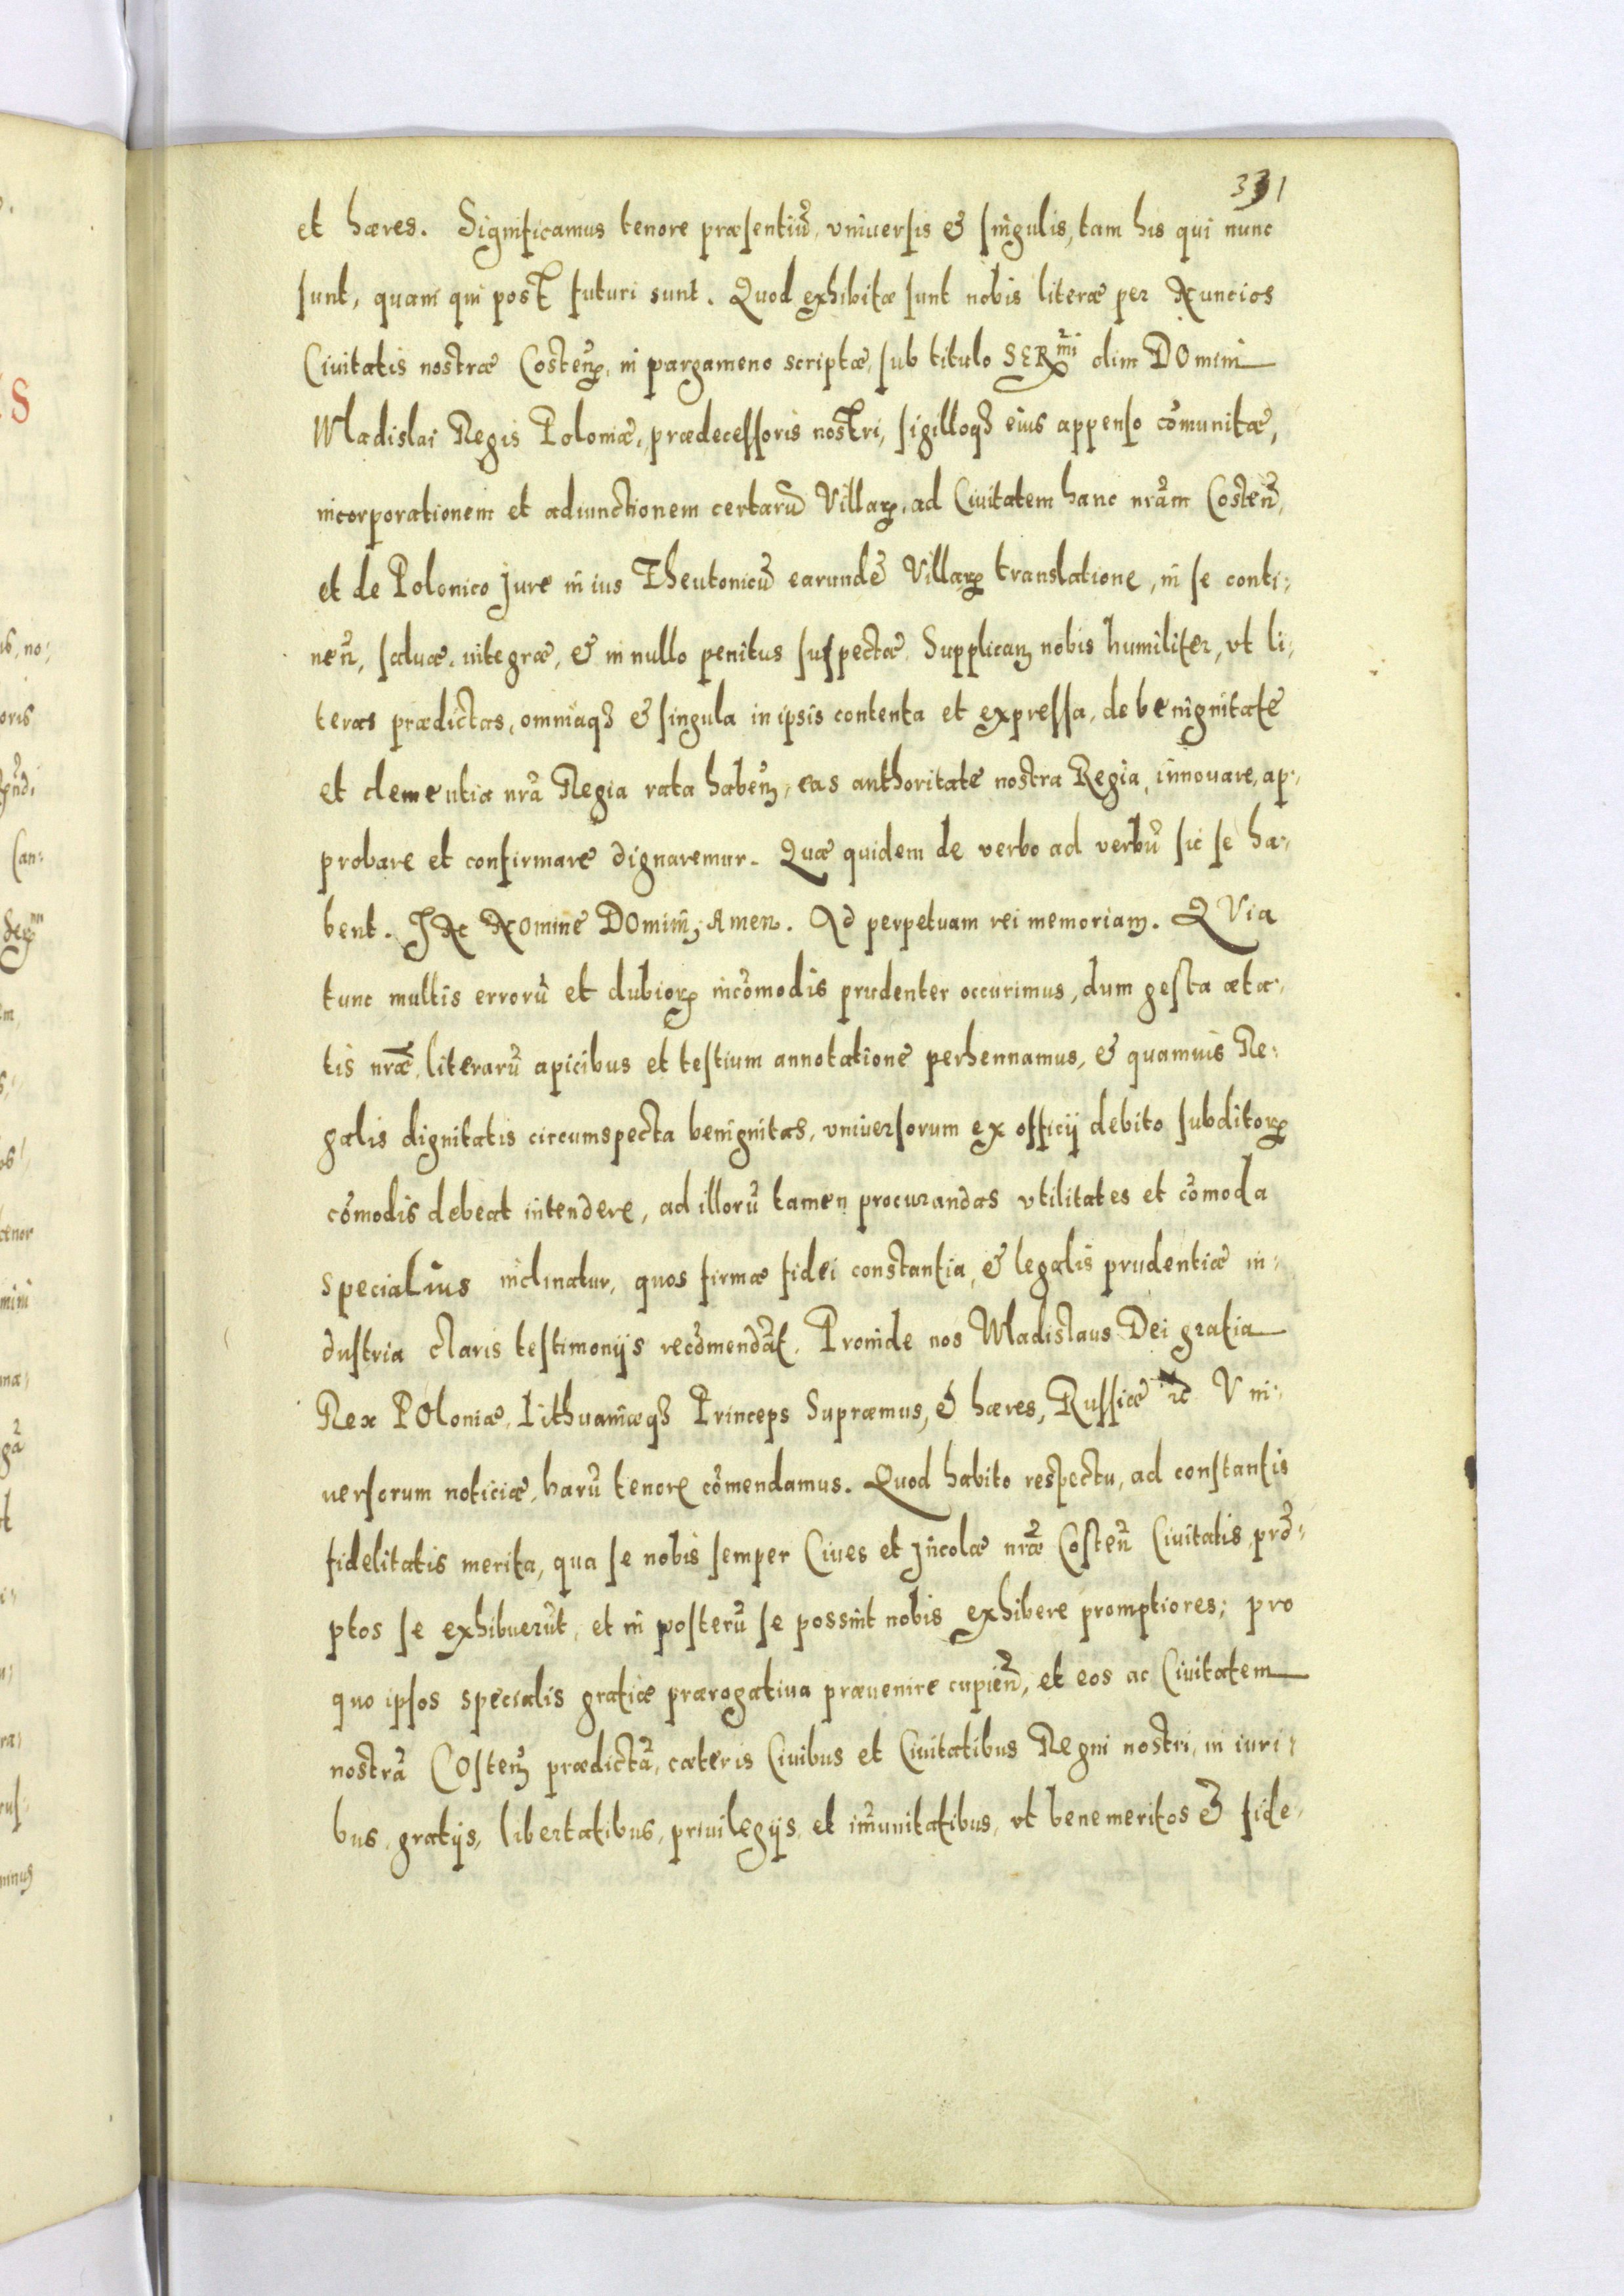 331
et hæres. Significamus tenore præsentiũ, vniuersis & singulis, tam his qui nunc
sunt, quam qui post futuri sunt. Quod exhibitæ sunt nobis literæ per Nuncios
Ciuitatis nostræ Costeñ, in pargameno scriptæ, sub titulo SERmi olim DOmini
Wladislai Regis Poloniæ, prædecessoris nostri, sigilloqꝫ eius appenso cõmunitæ,
incorporationem et adiunctionem certarũ Villarꝝ, ad Ciuitatem hanc nr̃am Costeñ,
et de Polonico Jure in ius Theutonicũ earundẽ Villarꝝ translatione, in se conti:
neñ, saluæ, integræ, & in nullo penitus suspectæ. Supplicañ nobis humiliter, vt li:
teras prædictas, omniaqꝫ & singula in ipsis contenta et expressa, de benignitate
et clementia nr̃a Regia rata habeñ, eas authoritate nostra Regia, innouare, ap:
probare et confirmare dignaremur. Quæ quidem de verbo ad verbũ sic se ha:
bent. JN NOmine DOmini, Amen. Ad perpetuam rei memoriam. QVia
tunc multis errorũ et dubiorꝝ incõmodis prudenter occurimus, dum gesta æta:
tis nr̃æ, literarũ apicibus et testium annotatione perhennamus, & quamuis Re:
galis dignitatis circumspecta benignitas, vniuersorum ex officij debito subditorꝝ
cõmodis debeat intendere, ad illorũ tamen procurandas vtilitates et cõmoda
specialius inclinatur, quos firmæ fidei constantia, & legalis prudentiæ in:
dustria claris testimonijs recõmendãt. Proinde nos Wladislaus Dei gratia
Rex POloniæ, Lithuaniæqꝫ Princeps Supræmus, & hæres, Russiæ ꝛc Vni:
uersorum noticiæ, harũ tenore cõmendamus. Quod habito respectu, ad constantis
fidelitatis merita, qua se nobis semper Ciues et Jncolæ nr̃æ Costeñ Ciuitatis, prõ:
ptos se exhibuerũt, et in posterũ se possint nobis exhibere promptiores; pro
quo ipsos specialis gratiæ prærogatiua præuenire cupieñ, et eos ac Ciuitatem
nostrã COsteñ prædictã, cæteris Ciuibus et Ciuitatibus Regni nostri, in iuri:
bus, gratijs, libertatibus, priuilegijs, et im̃unitatibus, vt benemeritos & fide: